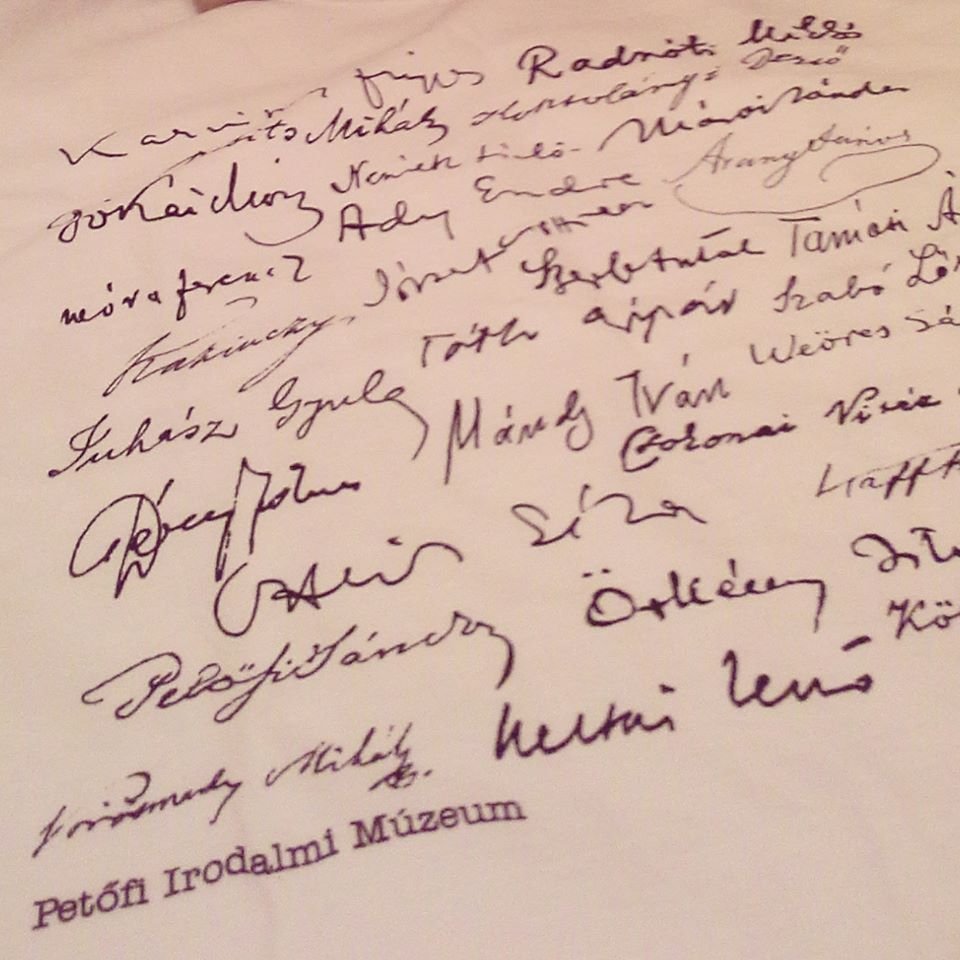 Karinthy Frigyes Radnóti Miklós
Babits Mihály Kosztolányi Dezső
Jókai Mór Németh László Márai Sándor
Ady Endre Arany János
Móra Ferenc József Attila
Kazinczy Szerb Antal Tamási Á
Juhász Gyula Tóth Árpád Szabó Lő
Mándy Iván Weöres Sá
Csokonai Vitéz
Géza
Petőfi Sándor Örkény
Heltai Jenő Kö
Vörösmarty Mihály
Petőfi Irodalmi Múzeum